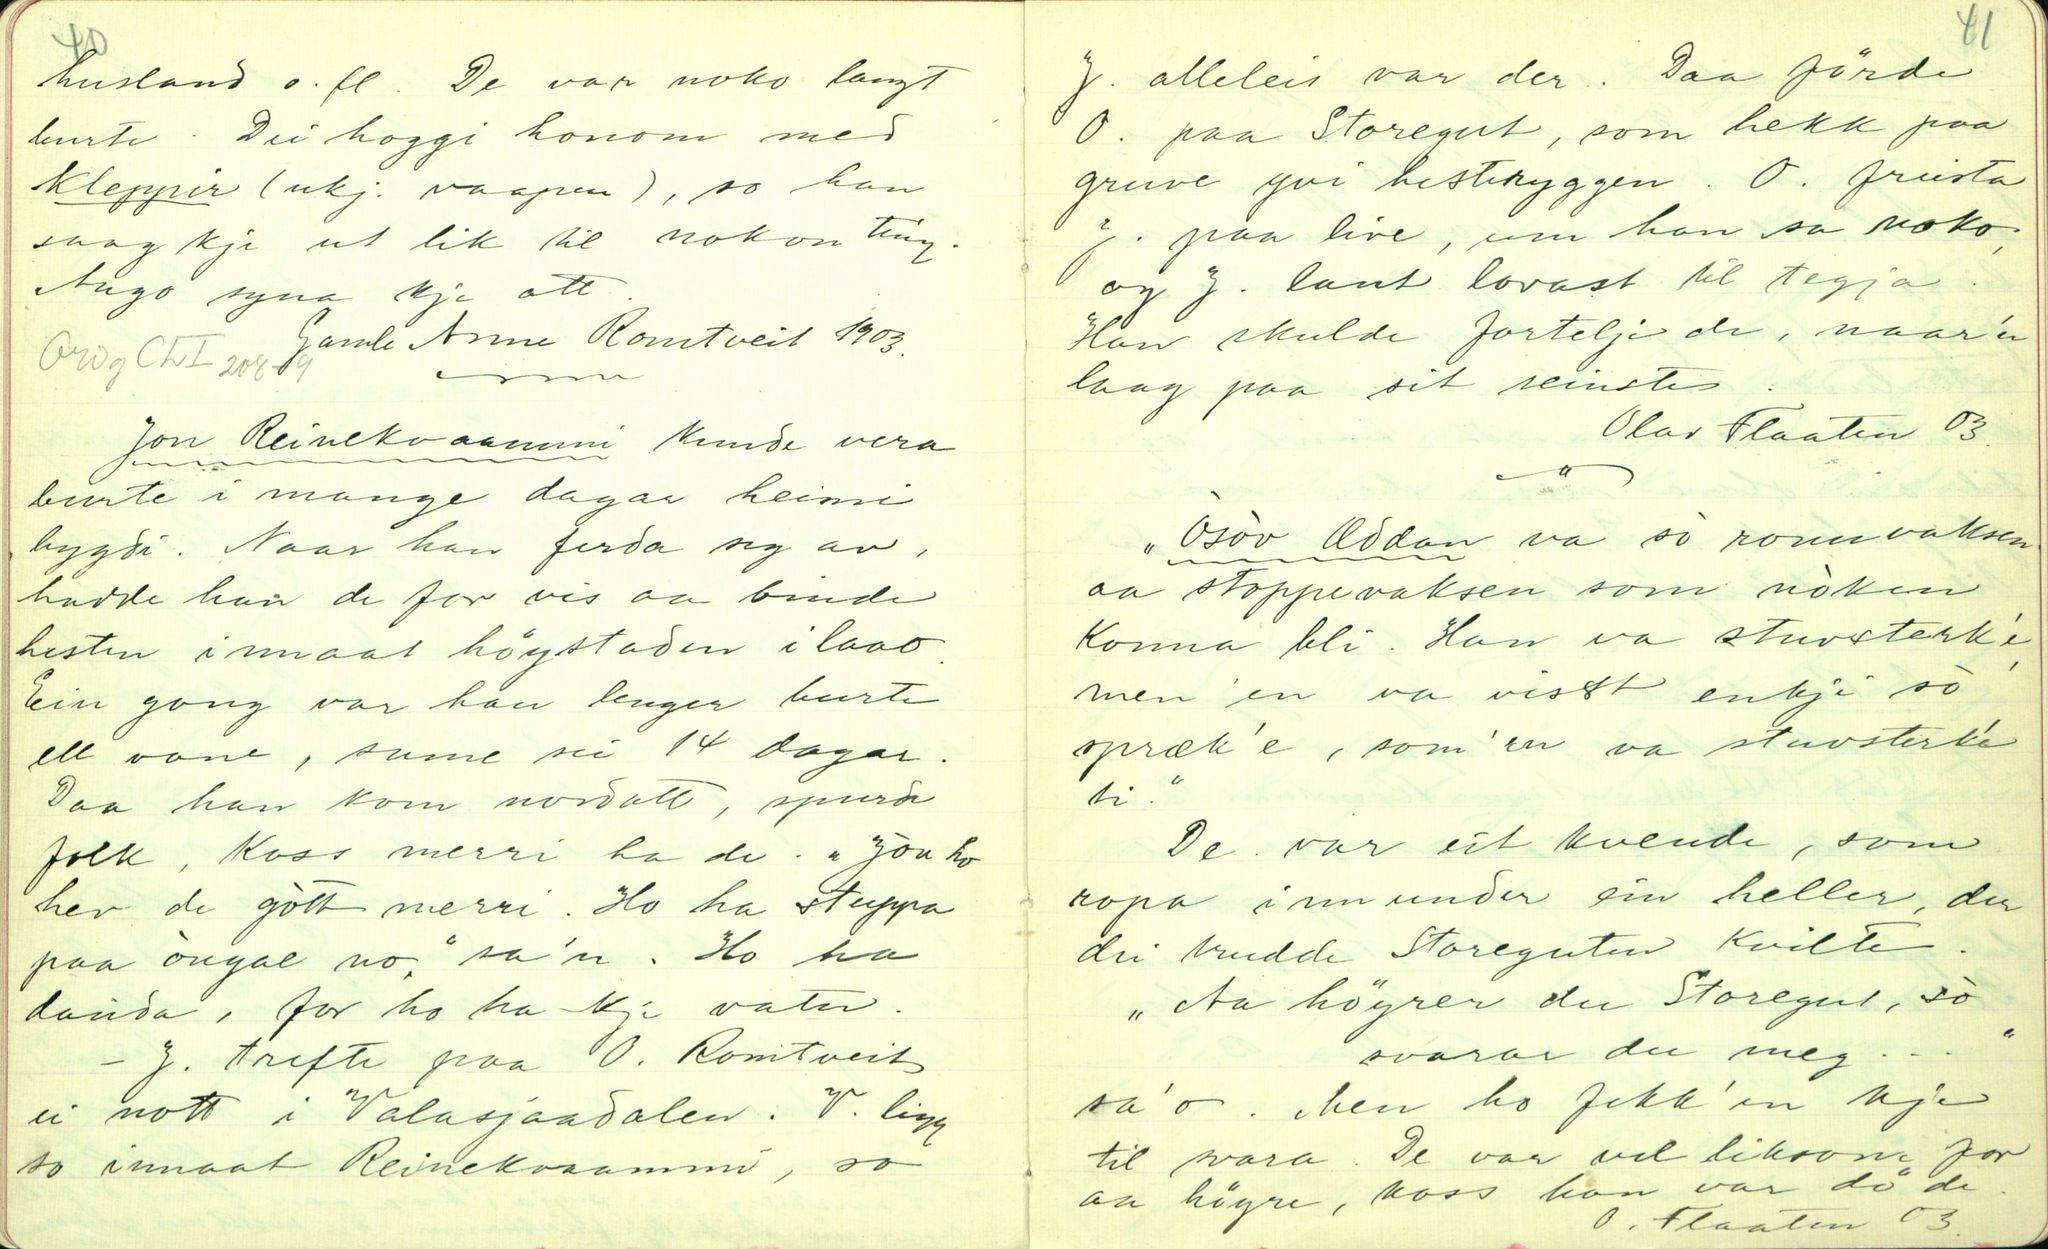 40
husland o.fl. De var noko langt
burte. Dei hoggi honom med
kleppir (ukj. vaapen), so han
saag kje ut lik til nokon ting.
Augo syna kje att.
Gamle Anne Romtveit 1903.
Orig CLI 208-9
Jon Reinekvaammi kunde vera
burte i mange dagar heimi
bygdi. Naar han ferda seg av,
hadde han de for vis aa binde
hesten innaat höystaden i laao.
Ein gong var han lenger burte
ell vane, sume sei 14 dagar.
Daa han kom nordatt, spurde
folk, koss merri ha de. „Jòu ho
hev de gòtt merri. Ho ha stuppa
paa òngal no," sa'n. Ho ha
daüda, for ho ha kje vatn.
– J. trefte paa O. Romtveit
ei nott i Valasjaadalen. V. ligg
so innaat Reinekvaammi, so
41
J. alleleis var der. Daa förde
O. paa Storegut, som hekk paa
gruve yvi hesteryggen. O. freista
J. paa live, um han sa noko,
og J. laut lovast til tegja.
Han skulde fortelje de, naar'n
laag paa sit seinste.
Olav Flaaten 03.
"
„Òsòv Oddan va sò romvaksen
aa stoppevaksen som nòken
konna bli. Han va stuvsterk'e,
men 'en va visst enkji sò
spræk'e, som'en va stuvsterk'e
ti."
De var eit kvende, som
ropa innunder ein heller, der
dei trudde Storeguten kvilte.
„Aa höyrer du Storegut, sò
svarar du meg..."
sa'o. Men ho fekk'en kje
til svara. De var vel liksom for
aa höyre, koss han var dö de.
O. Flaaten 03